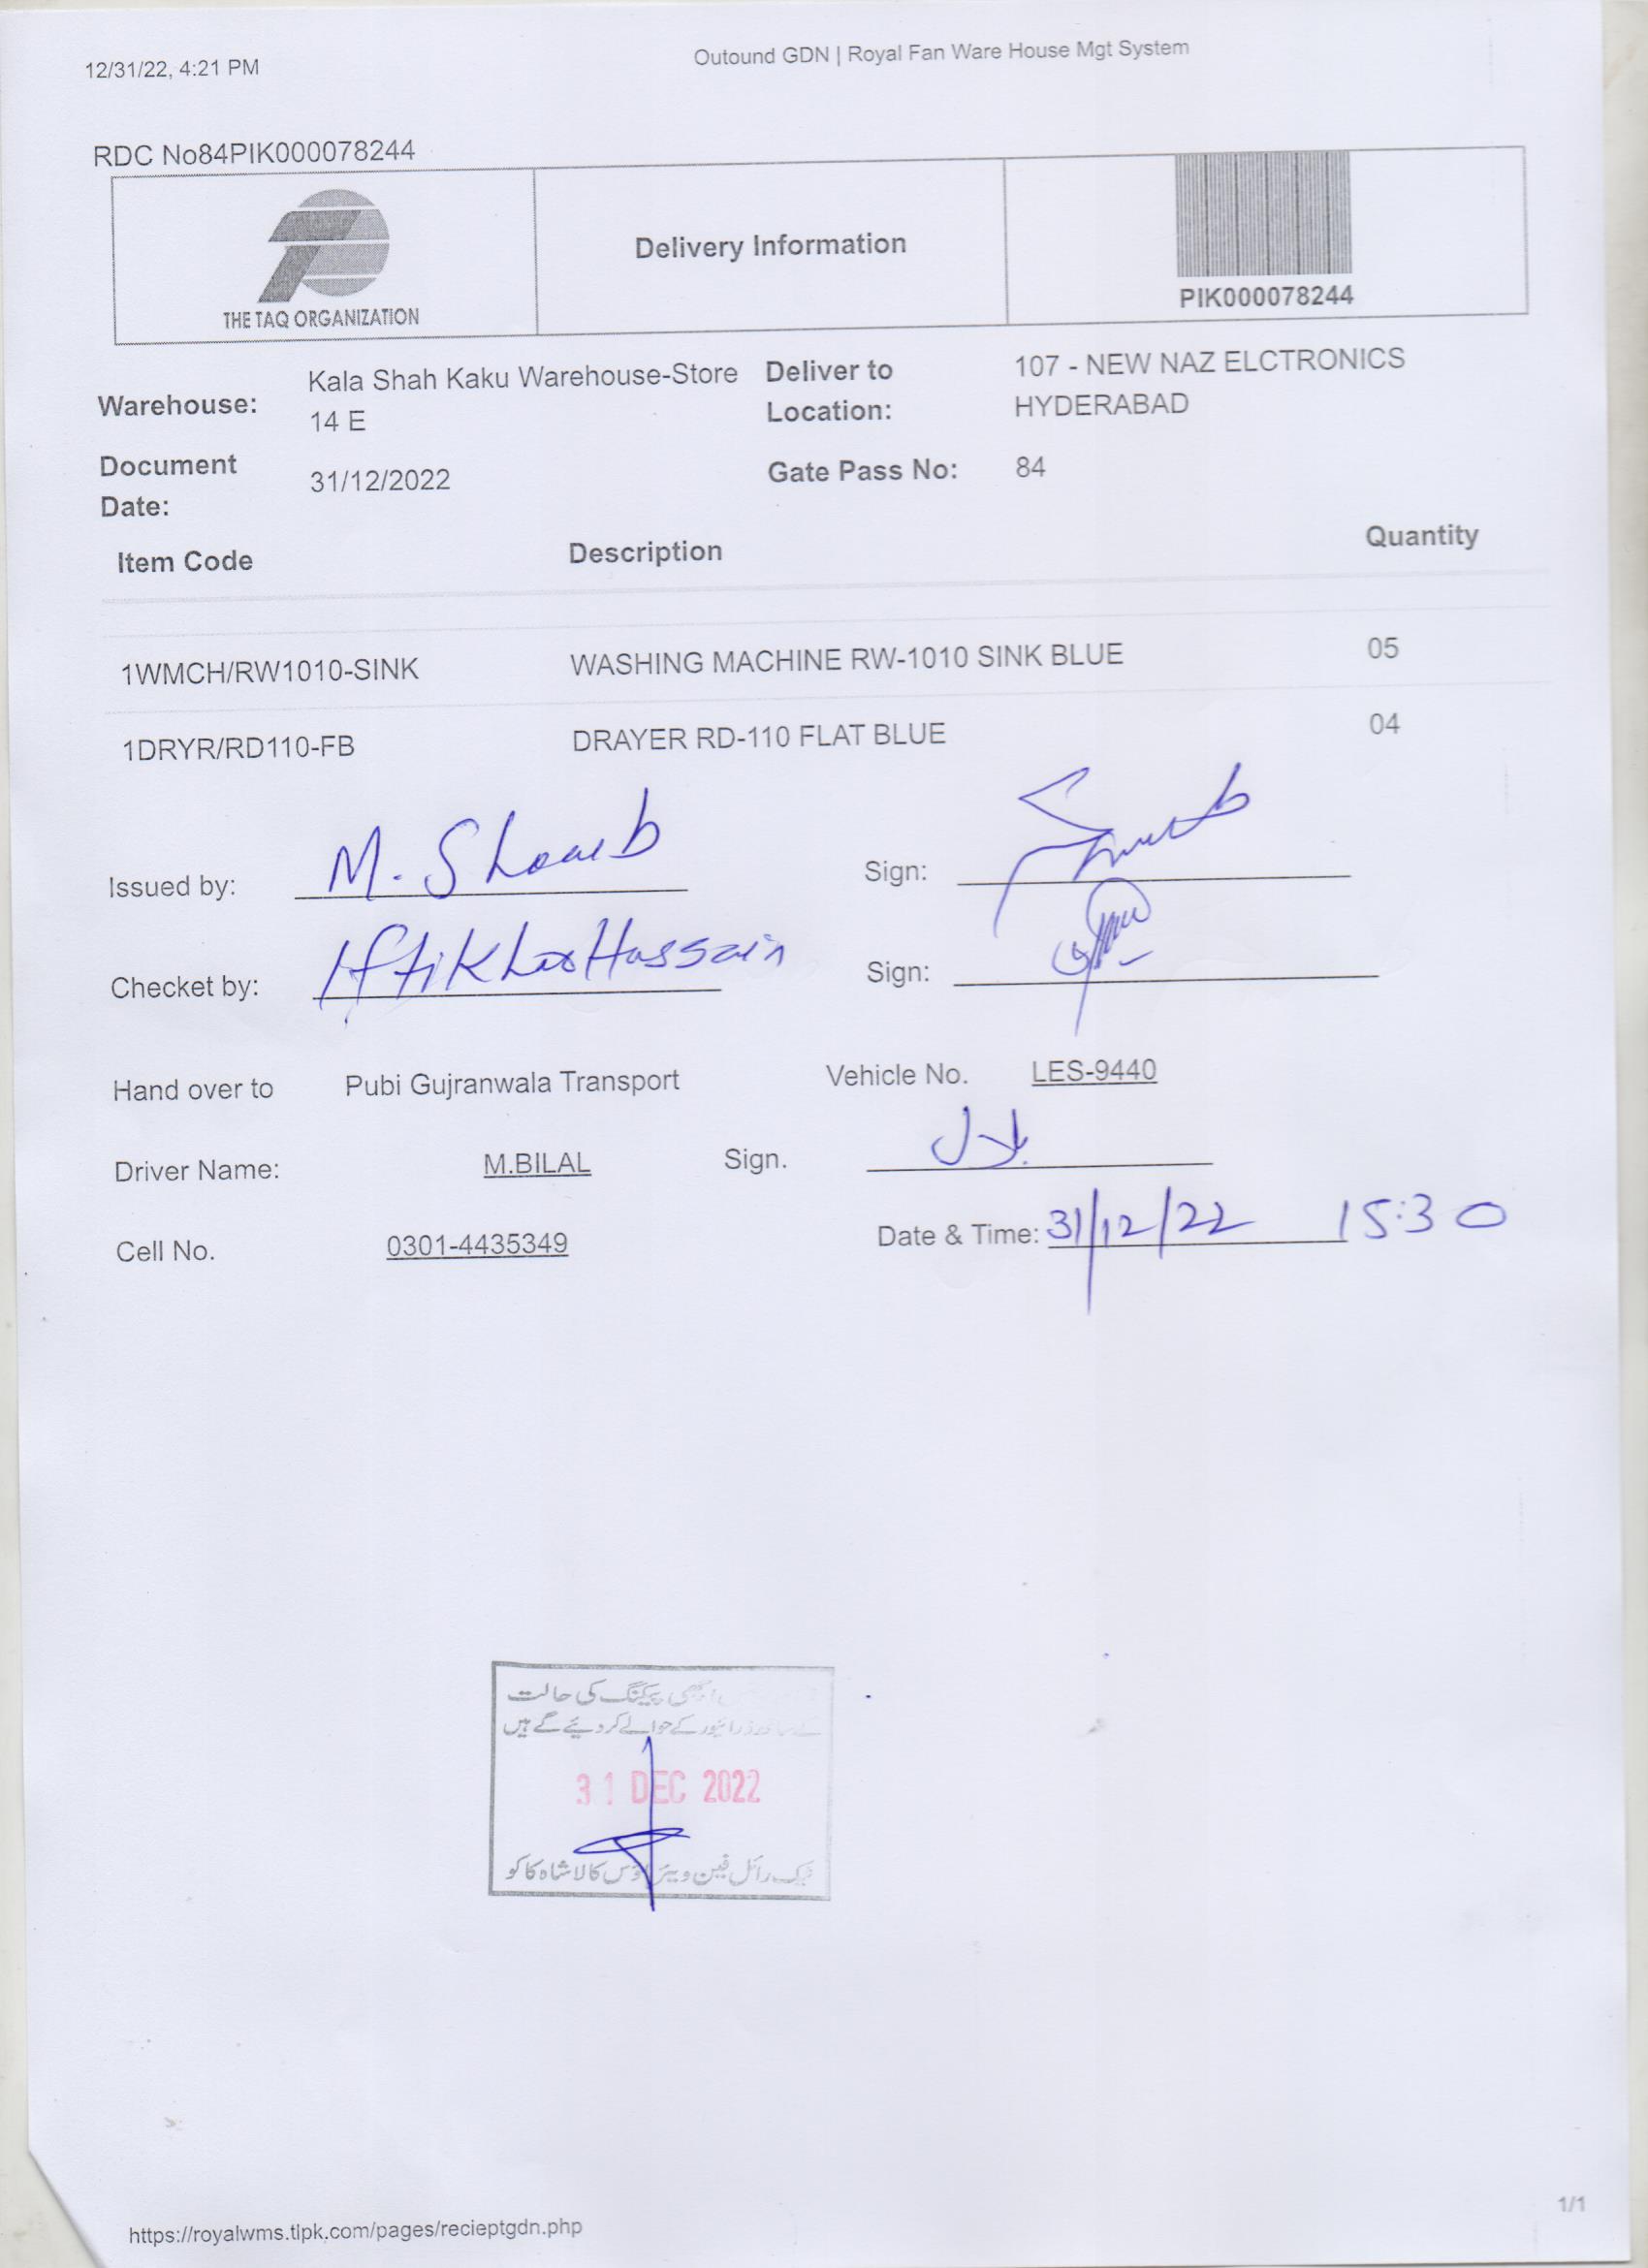 12/31/22, 4:21 PM
Outound GDN | Royal Fan Ware House Mgt System
RDC No84PIK000078244
THE TAQ ORGANIZATION
Delivery Information
PIK000078244
Warehouse: Kala Shah Kaku Warehouse-Store 14 E
Deliver to Location: 107 - NEW NAZ ELCTRONICS HYDERABAD
Document Date: 31/12/2022
Gate Pass No: 84
Item Code Description Quantity
1WMCH/RW1010-SINK WASHING MACHINE RW-1010 SINK BLUE 05
1DRYR/RD110-FB DRAYER RD-110 FLAT BLUE 04
Issued by: M. Shoaib Sign:
Checket by: Iftikhar Hussain Sign:
Hand over to Pubi Gujranwala Transport Vehicle No. LES-9440
Driver Name: M.BILAL Sign. بلال
Cell No. 0301-4435349 Date & Time: 31/12/22 15:30
اچھی پیکنگ کی حالت
کے ساتھ ڈرائیور کے حوالے کر دیئے گے ہیں
31 DEC 2022
رائل فین ویئر ہاؤس کالا شاہ کاکو
https://royalwms.tlpk.com/pages/recieptgdn.php
1/1